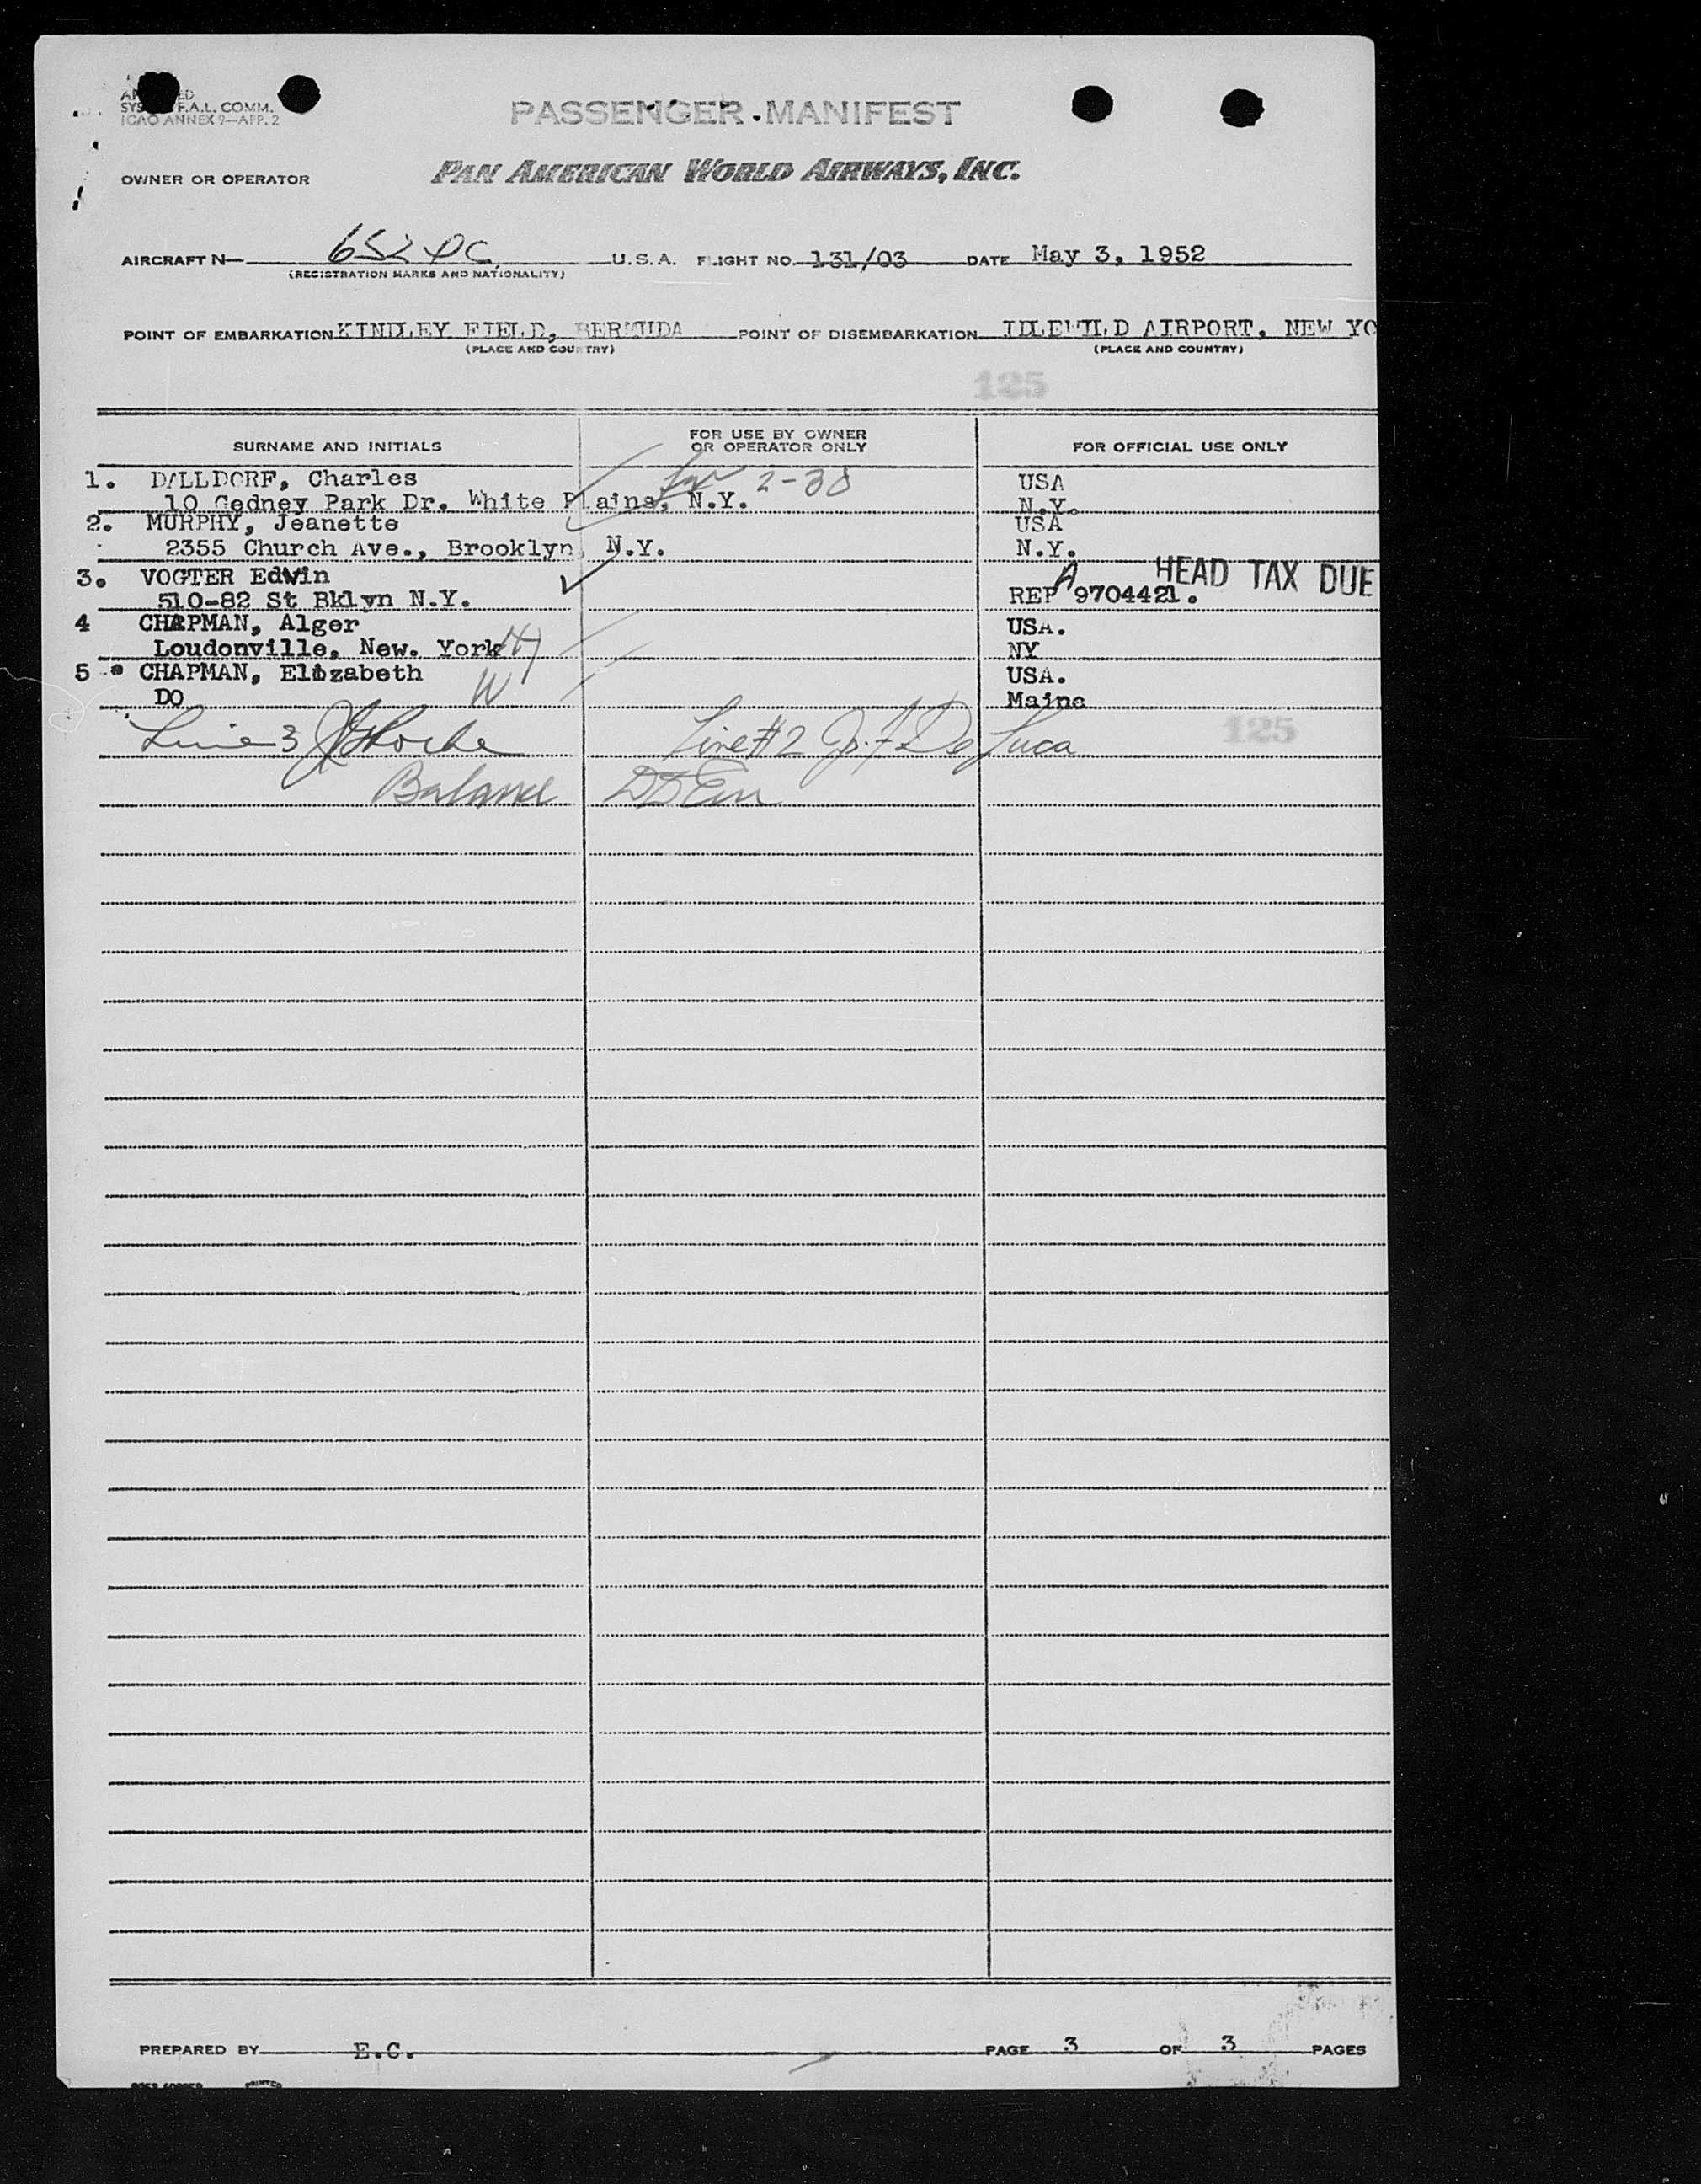 F.A.L. COMM.
ICAO ANNEX 9—APP. 2
PASSENGER MANIFEST
OWNER OR OPERATOR PAN AMERICAN WORLD AIRWAYS, INC.
AIRCRAFT N— 652 PC U.S.A. FLIGHT NO. 131/03 DATE May 3, 1952
(REGISTRATION MARKS AND NATIONALITY)
POINT OF EMBARKATION KINDLEY FIELD, BERMUDA POINT OF DISEMBARKATION IDLEWILD AIRPORT, NEW YO
(PLACE AND COUNTRY) (PLACE AND COUNTRY)
125
SURNAME AND INITIALS FOR USE BY OWNER OR OPERATOR ONLY FOR OFFICIAL USE ONLY
1. DALLDORF, Charles 2-38 USA
10 Gedney Park Dr. White Plains, N.Y. N.Y.
2. MURPHY, Jeanette USA
2355 Church Ave., Brooklyn, N.Y. N.Y.
3. VOGTER Edwin HEAD TAX DUE
510-82 St Bklyn N.Y. REP A 9704421.
4 CHAPMAN, Alger USA.
Loudonville, New. York H NY
5 CHAPMAN, Elizabeth USA.
DO W Maine
Line 3 Line #2 J. F. De Luca 125
Balance
PREPARED BY E.C. PAGE 3 OF 3 PAGES